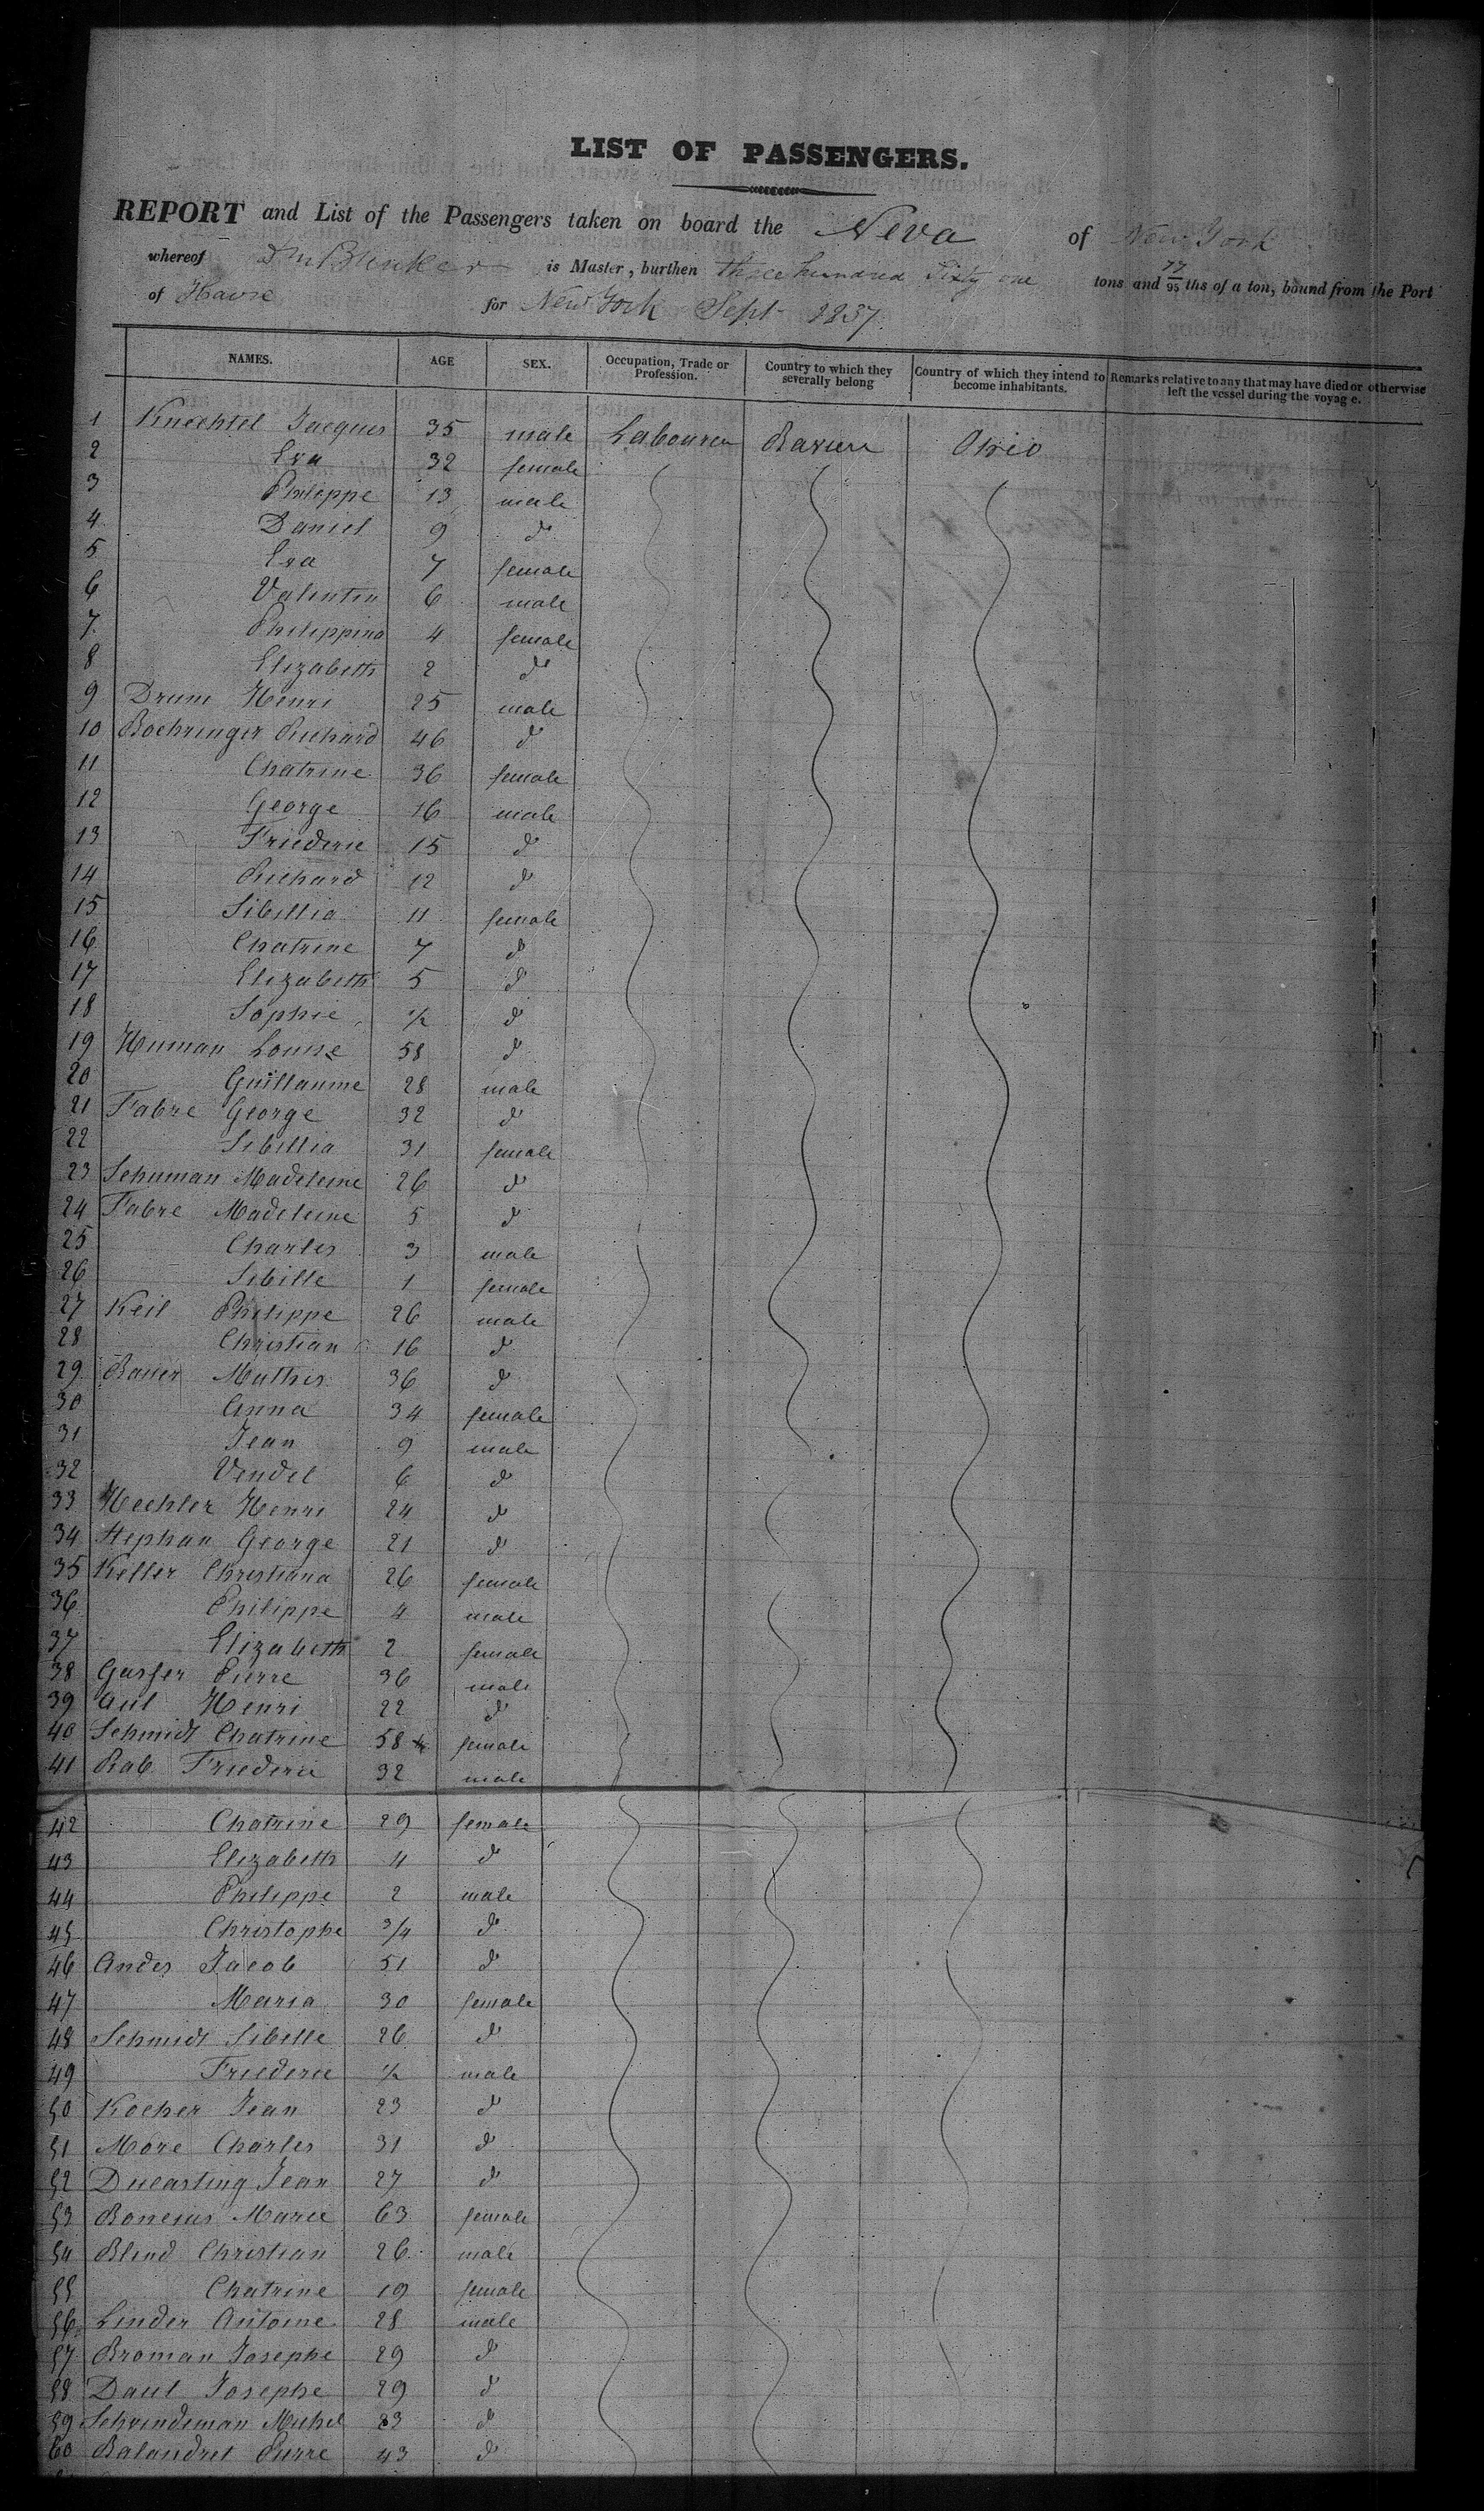 LIST OF PASSENGERS.
REPORT and List of the Passengers taken on board the Neva of New York
whereof is Master, burthen three hundred Sixty one tons and 77/95 ths of a ton, bound from the Port
of Havre for New York Sept 1837
NAMES. AGE SEX. Occupation, Trade or Profession. Country to which they severally belong Country of which they intend to become inhabitants. Remarks relative to any that may have died or otherwise left the vessel during the voyage.
1 Knechtel Jacques 35 male Labourer Baviere Ohio
2 Eva 32 female
3 Philippe 13 male
4 Daniel 9 do
5 Eva 7 female
6 Valentin 6 male
7 Philippina 4 female
8 Elizabeth 2 do
9 Drum Henri 25 male
10 Boehringer Richard 46 do
11 Chatrine 36 female
12 George 16 male
13 Friederic 15 do
14 Richard 12 do
15 Sibillia 11 female
16 Chatrine 7 do
17 Elizabeth 5 do
18 Sophie 1/2 do
19 Human Louise 58 do
20 Guillaume 28 male
21 Fabre George 32 do
22 Sibillia 31 female
23 Schuman Madeleine 26 do
24 Fabre Madeleine 5 do
25 Charles 3 male
26 Sibille 1 female
27 Keil Philippe 26 male
28 Christian 16 do
29 Bauer Mathis 36 do
30 Anna 34 female
31 Jean 9 male
32 Vendel 6 do
33 Hechler Henri 24 do
34 Stephan George 21 do
35 Keller Christiana 26 female
36 Philippe 4 male
37 Elizabeth 2 female
38 Gasser Pierre 36 male
39 Aul Henri 22 do
40 Schmidt Chatrine 58 female
41 Rab Friederic 32 male
42 Chatrine 29 female
43 Elizabeth 4 do
44 Philippe 2 male
45 Christophe 3/4 do
46 Andes Jacob 51 do
47 Maria 30 female
48 Schmidt Sibille 26 do
49 Friederic 1/2 male
50 Kocher Jean 23 do
51 More Charles 31 do
52 Ducasting Jean 27 do
53 Marie 63 female
54 Blind Christian 26 male
55 Chatrine 19 female
56 Linder Antoine 28 male
57 Broman Josephe 29 do
58 Daul Josephe 29 do
59 Schvindeman Michel 23 do
60 Balandret Pierre 43 do